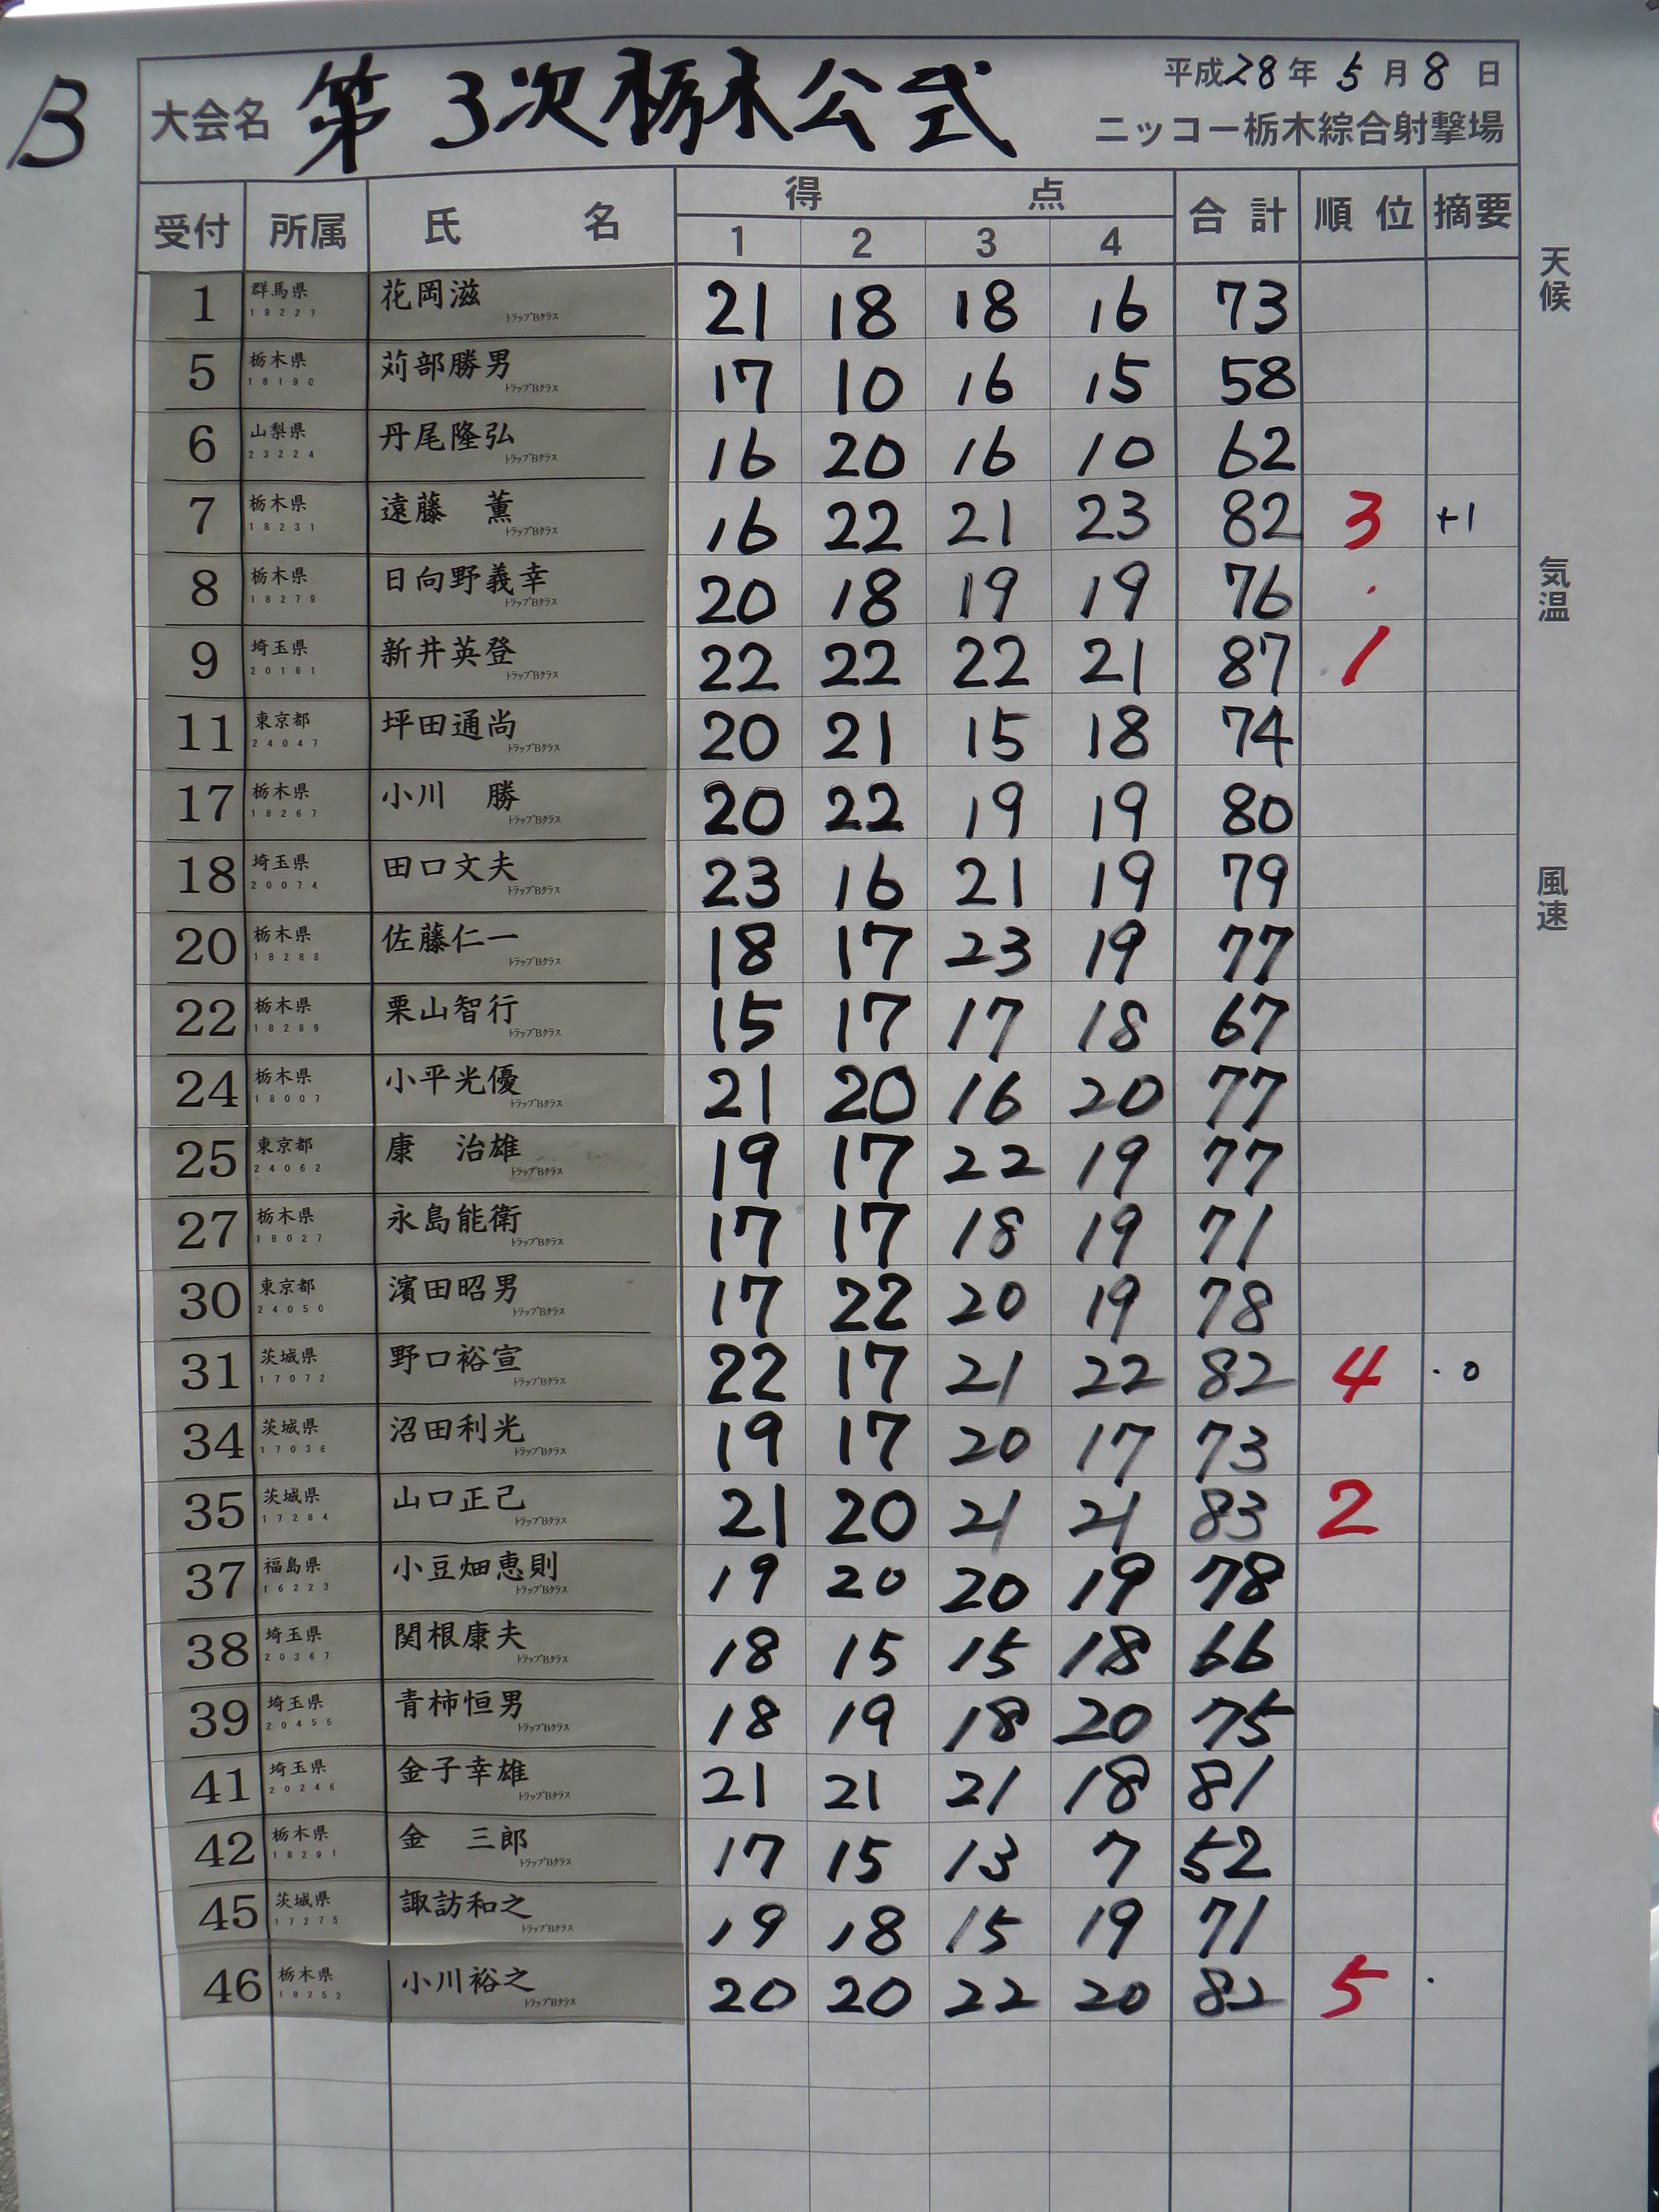 B
大会名 第3次栃木公式 平成28年5月8日
ニッコー栃木綜合射撃場
受付 所属 氏名 得点 合計 順位 摘要
1 2 3 4
天候
気温
風速
1 群馬県 19227 花岡滋 トラップBクラス 21 18 18 16 73
5 栃木県 18190 苅部勝男 トラップBクラス 17 10 16 15 58
6 山梨県 23224 丹尾隆弘 トラップBクラス 16 20 16 10 62
7 栃木県 18231 遠藤 薫 トラップBクラス 16 22 21 23 82 3 +1
8 栃木県 18279 日向野義幸 トラップBクラス 20 18 19 19 76
9 埼玉県 20181 新井英登 トラップBクラス 22 22 22 21 87 1
11 東京都 24047 坪田通尚 トラップBクラス 20 21 15 18 74
17 栃木県 18267 小川 勝 トラップBクラス 20 22 19 19 80
18 埼玉県 20074 田口文夫 トラップBクラス 23 16 21 19 79
20 栃木県 18288 佐藤仁一 トラップBクラス 18 17 23 19 77
22 栃木県 18289 栗山智行 トラップBクラス 15 17 17 18 67
24 栃木県 18007 小平光優 トラップBクラス 21 20 16 20 77
25 東京都 24062 康 治雄 トラップBクラス 19 17 22 19 77
27 栃木県 18027 永島能衛 トラップBクラス 17 17 18 19 71
30 東京都 24050 濱田昭男 トラップBクラス 17 22 20 19 78
31 茨城県 17072 野口裕宣 トラップBクラス 22 17 21 22 82 4 0
34 茨城県 17036 沼田利光 トラップBクラス 19 17 20 17 73
35 茨城県 17284 山口正己 トラップBクラス 21 20 21 21 83 2
37 福島県 16223 小豆畑恵則 トラップBクラス 19 20 20 19 78
38 埼玉県 20367 関根康夫 トラップBクラス 18 15 15 18 66
39 埼玉県 20455 青柿恒男 トラップBクラス 18 19 18 20 75
41 埼玉県 20246 金子幸雄 トラップBクラス 21 21 21 18 81
42 栃木県 18291 金 三郎 トラップBクラス 17 15 13 7 52
45 茨城県 17275 諏訪和之 トラップBクラス 19 18 15 19 71
46 栃木県 18252 小川裕之 トラップBクラス 20 20 22 20 82 5